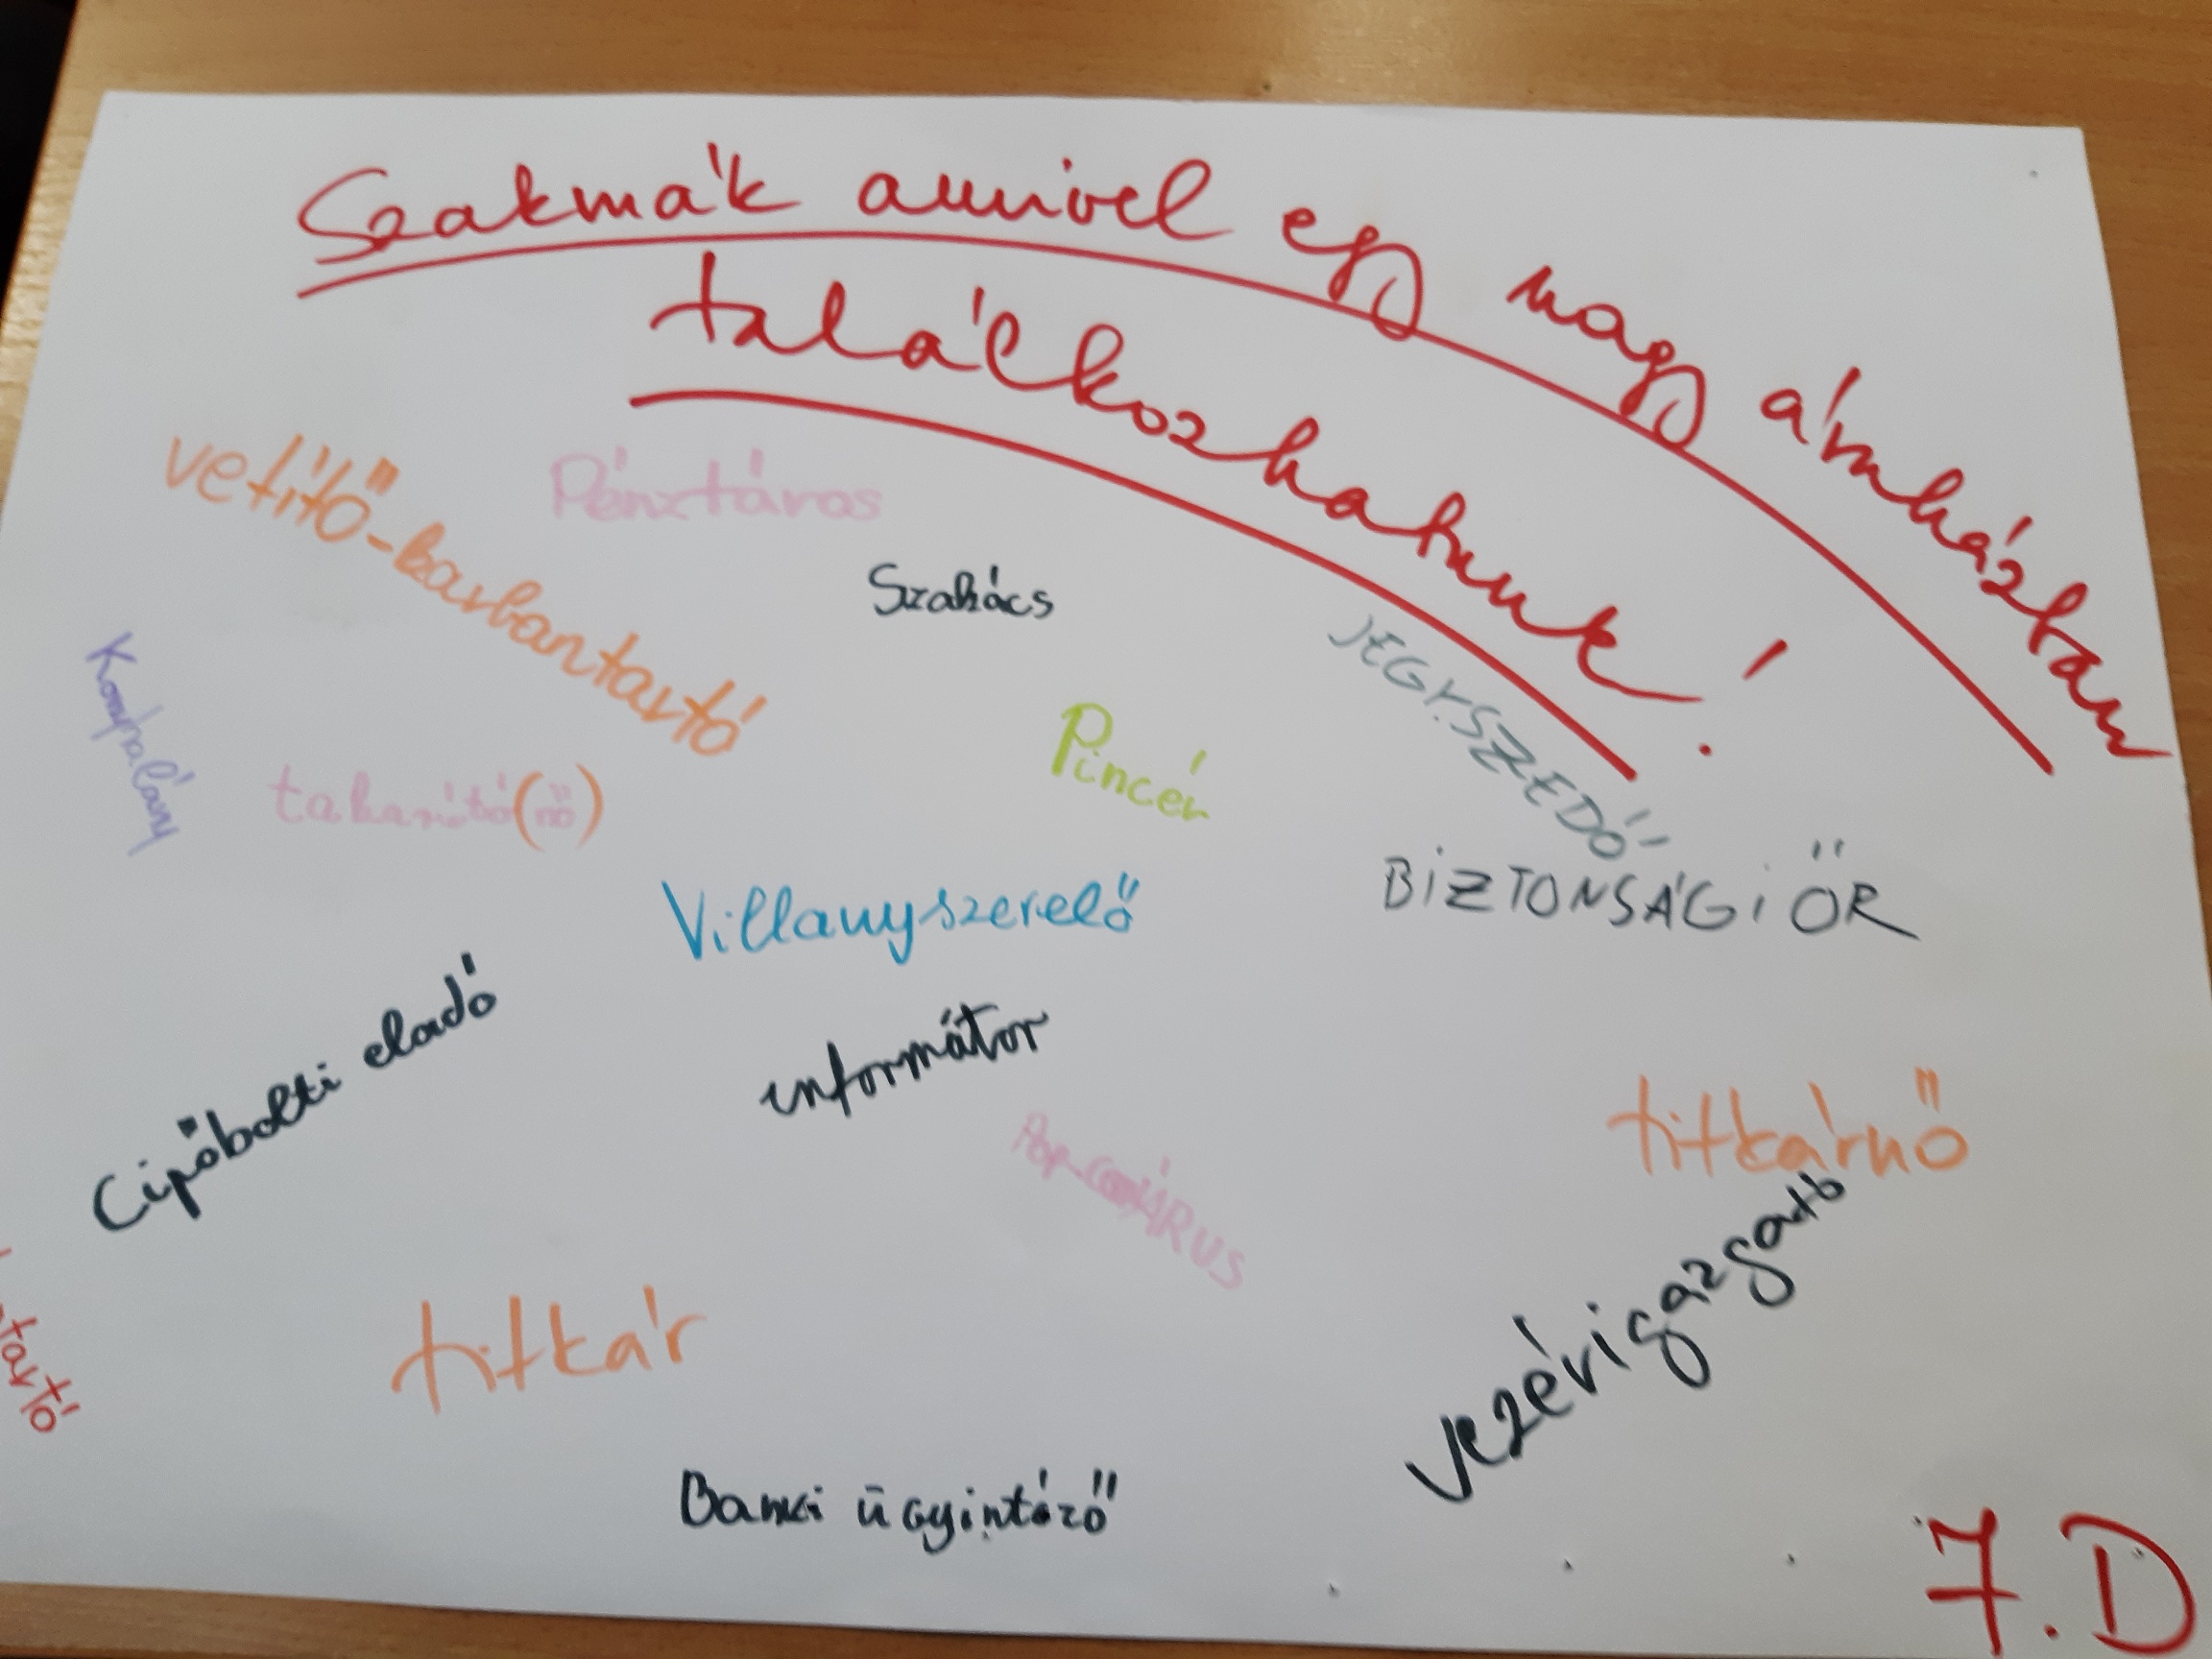 Szakmák amivel egy nagy áruházban
találkozhatunk!
vetítő-karbantartó
Pénztáros
Szakács
JEGYSZEDŐ
Konyhalány
takarító(nő)
Pincér
Villanyszerelő
BIZTONSÁGI ŐR
Cipőbolti eladó
informátor
Pop-corn ÁRUS
titkárnő
vezérigazgató
titkár
tartó
Banki ügyintéző
7.D